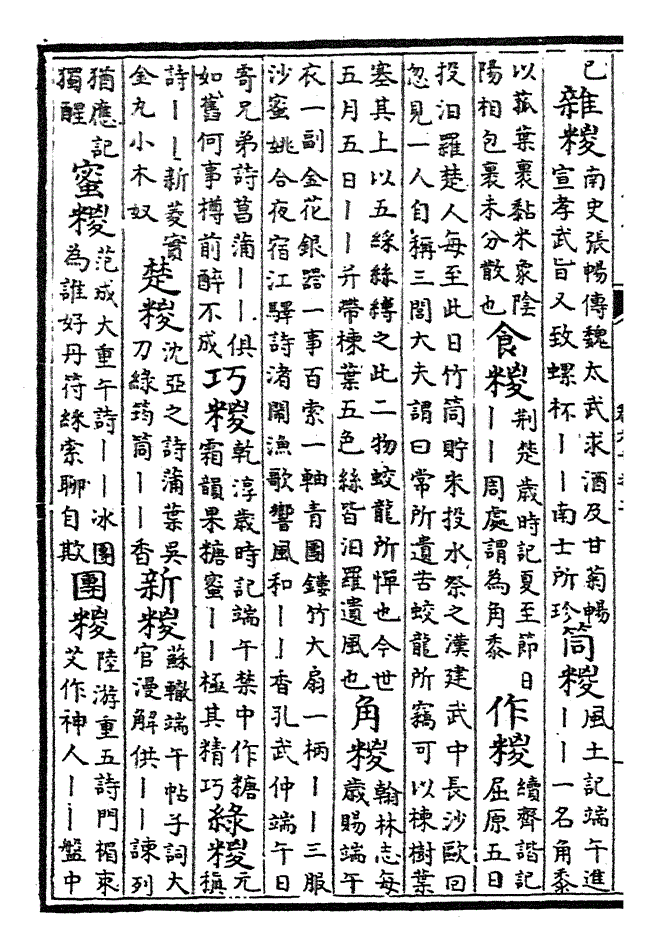 已
雜糉
南史張暢傳魏太武求酒及甘菊暢
宣孝武旨又致螺杯丨丨南士所珍
筒糉
風土記端午進
丨丨一名角黍
以菰葉裹黏米象陰
陽相包裹未分散也
食糉
荆楚歲時記夏至節日
丨丨周處謂為角黍
作糉
續齊諧記
屈原五日
投汨羅楚人每至此日竹筒貯米投水祭之漢建武中長沙歐回
忽見一人自稱三閭大夫謂曰常所遺苦蛟龍所竊可以楝樹葉
塞其上以五綵絲縳之此二物蛟龍所憚也今世
五月五日丨丨并帶楝葉五色絲皆汨羅遺風也
角糉
翰林志每
歲賜端午
衣一副金花銀器一事百索一軸青團鏤竹大扇一柄丨丨三服
沙蜜姚合夜宿江驛詩渚鬧漁歌響風和丨丨香孔武仲端午日
寄兄弟詩菖蒲丨丨俱
如舊何事樽前醉不成
巧糉
乾淳歲時記端午禁中作糖
霜韻果糖蜜丨丨極其精巧
綵糉
元
稹
詩丨丨新菱實
金丸小木奴
楚糉
沈亞之詩蒲葉吳
刀綠筠筒丨丨香
新糉
蘇轍端午帖子詞大
官漫解供丨丨諫列
猶應記
獨醒
蜜糉
范成大重午詩丨丨冰團
為誰好丹符綵索聊自欺
團糉
陸游重五詩門楣束
艾作神人丨丨盤中